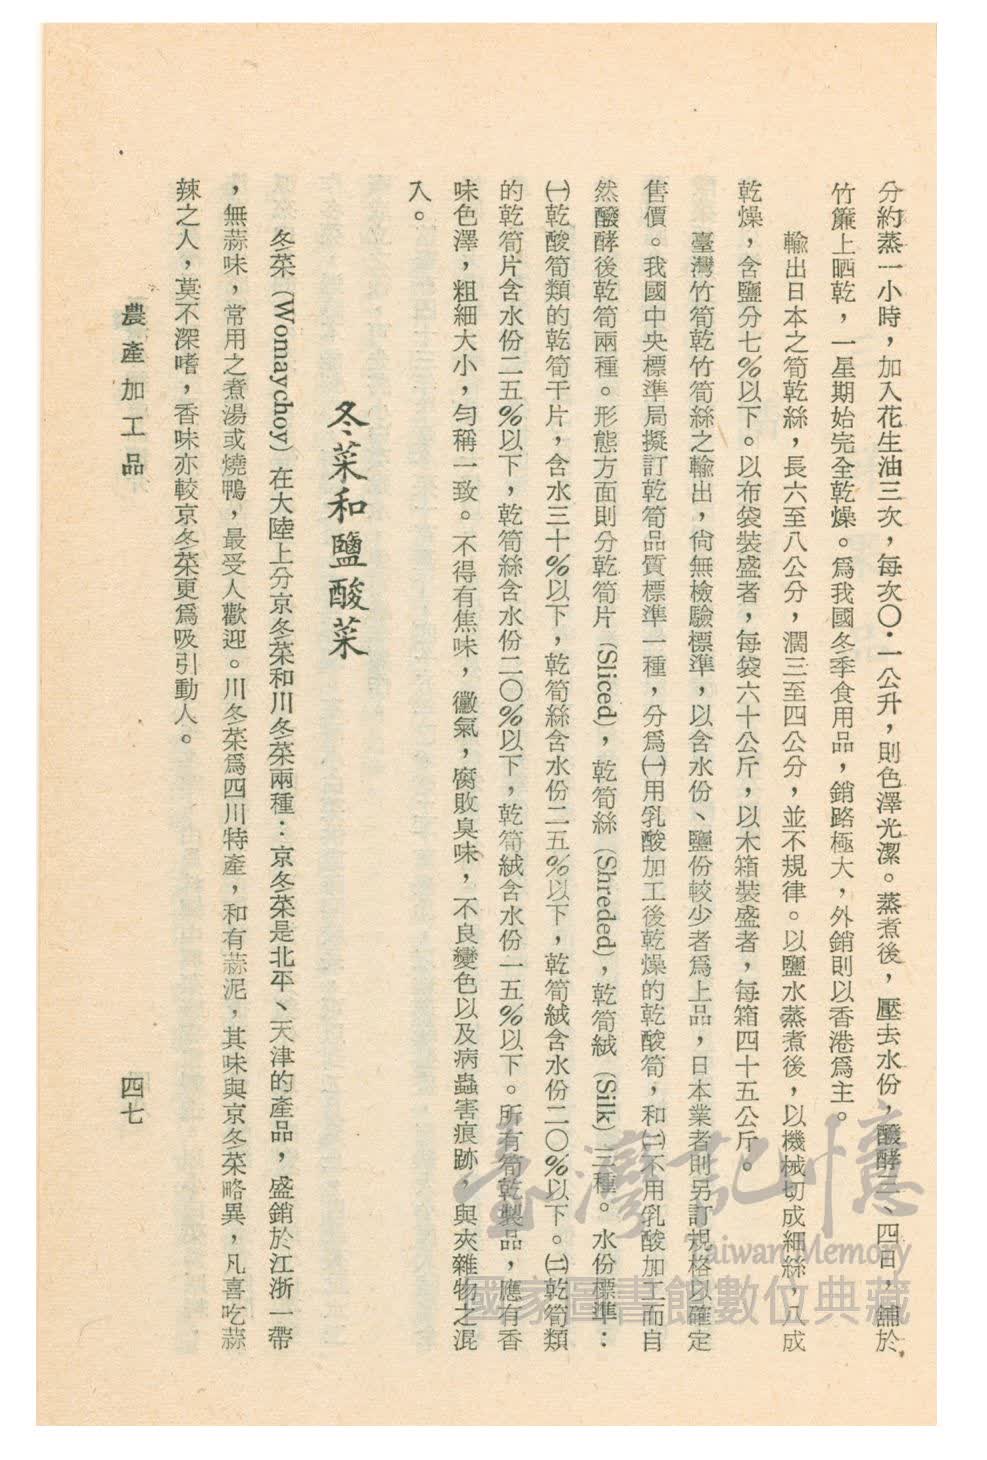 分約蒸一小時，加入花生油三次，每次〇・一公升，則色澤光潔。蒸煮後，壓去水份，醱酵三、四日，舖於
竹簾上晒乾，一星期始完全乾燥。爲我國冬季食用品，銷路極大，外銷則以香港爲主。
輸出日本之筍乾絲，長六至八公分，濶三至四公分，並不規律。以鹽水蒸煮後，以機械切成細絲，八成
乾燥，含鹽分七％以下。以布袋裝盛者，每袋六十公斤，以木箱裝盛者，每箱四十五公斤。
臺灣竹筍乾竹筍絲之輸出，尙無檢驗標準，以含水份、鹽份較少者爲上品，日本業者則另訂規格以確定
售價。我國中央標準局擬訂乾筍品質標準一種，分爲㈠用乳酸加工後乾燥的乾酸筍，和㈡不用乳酸加工而自
然醱酵後乾筍兩種。形態方面則分乾筍片(Sliced)，乾筍絲(Shreded)，乾筍絨(Silk)三種。水份標準：
㈠乾酸筍類的乾筍干片，含水三十％以下，乾筍絲含水份二五％以下，乾筍絨含水份二〇％以下。㈡乾筍類
的乾筍片含水份二五％以下，乾筍絲含水份二〇％以下，乾筍絨含水份一五％以下。所有筍乾製品，應有香
味色澤，粗細大小，勻稱一致。不得有焦味，黴氣，腐敗臭味，不良變色以及病蟲害痕跡，與夾雜物之混
入。
冬菜和鹽酸菜
冬菜(Womaychoy)在大陸上分京冬菜和川冬菜兩種：京冬菜是北平、天津的產品，盛銷於江浙一帶
，無蒜味，常用之煮湯或燒鴨，最受人歡迎。川冬菜爲四川特產，和有蒜泥，其味與京冬菜略異，凡喜吃蒜
辣之人，莫不深嗜，香味亦較京冬菜更爲吸引動人。
農產加工品
四七
臺灣記憶
Taiwan Memory
國家圖書館數位典藏